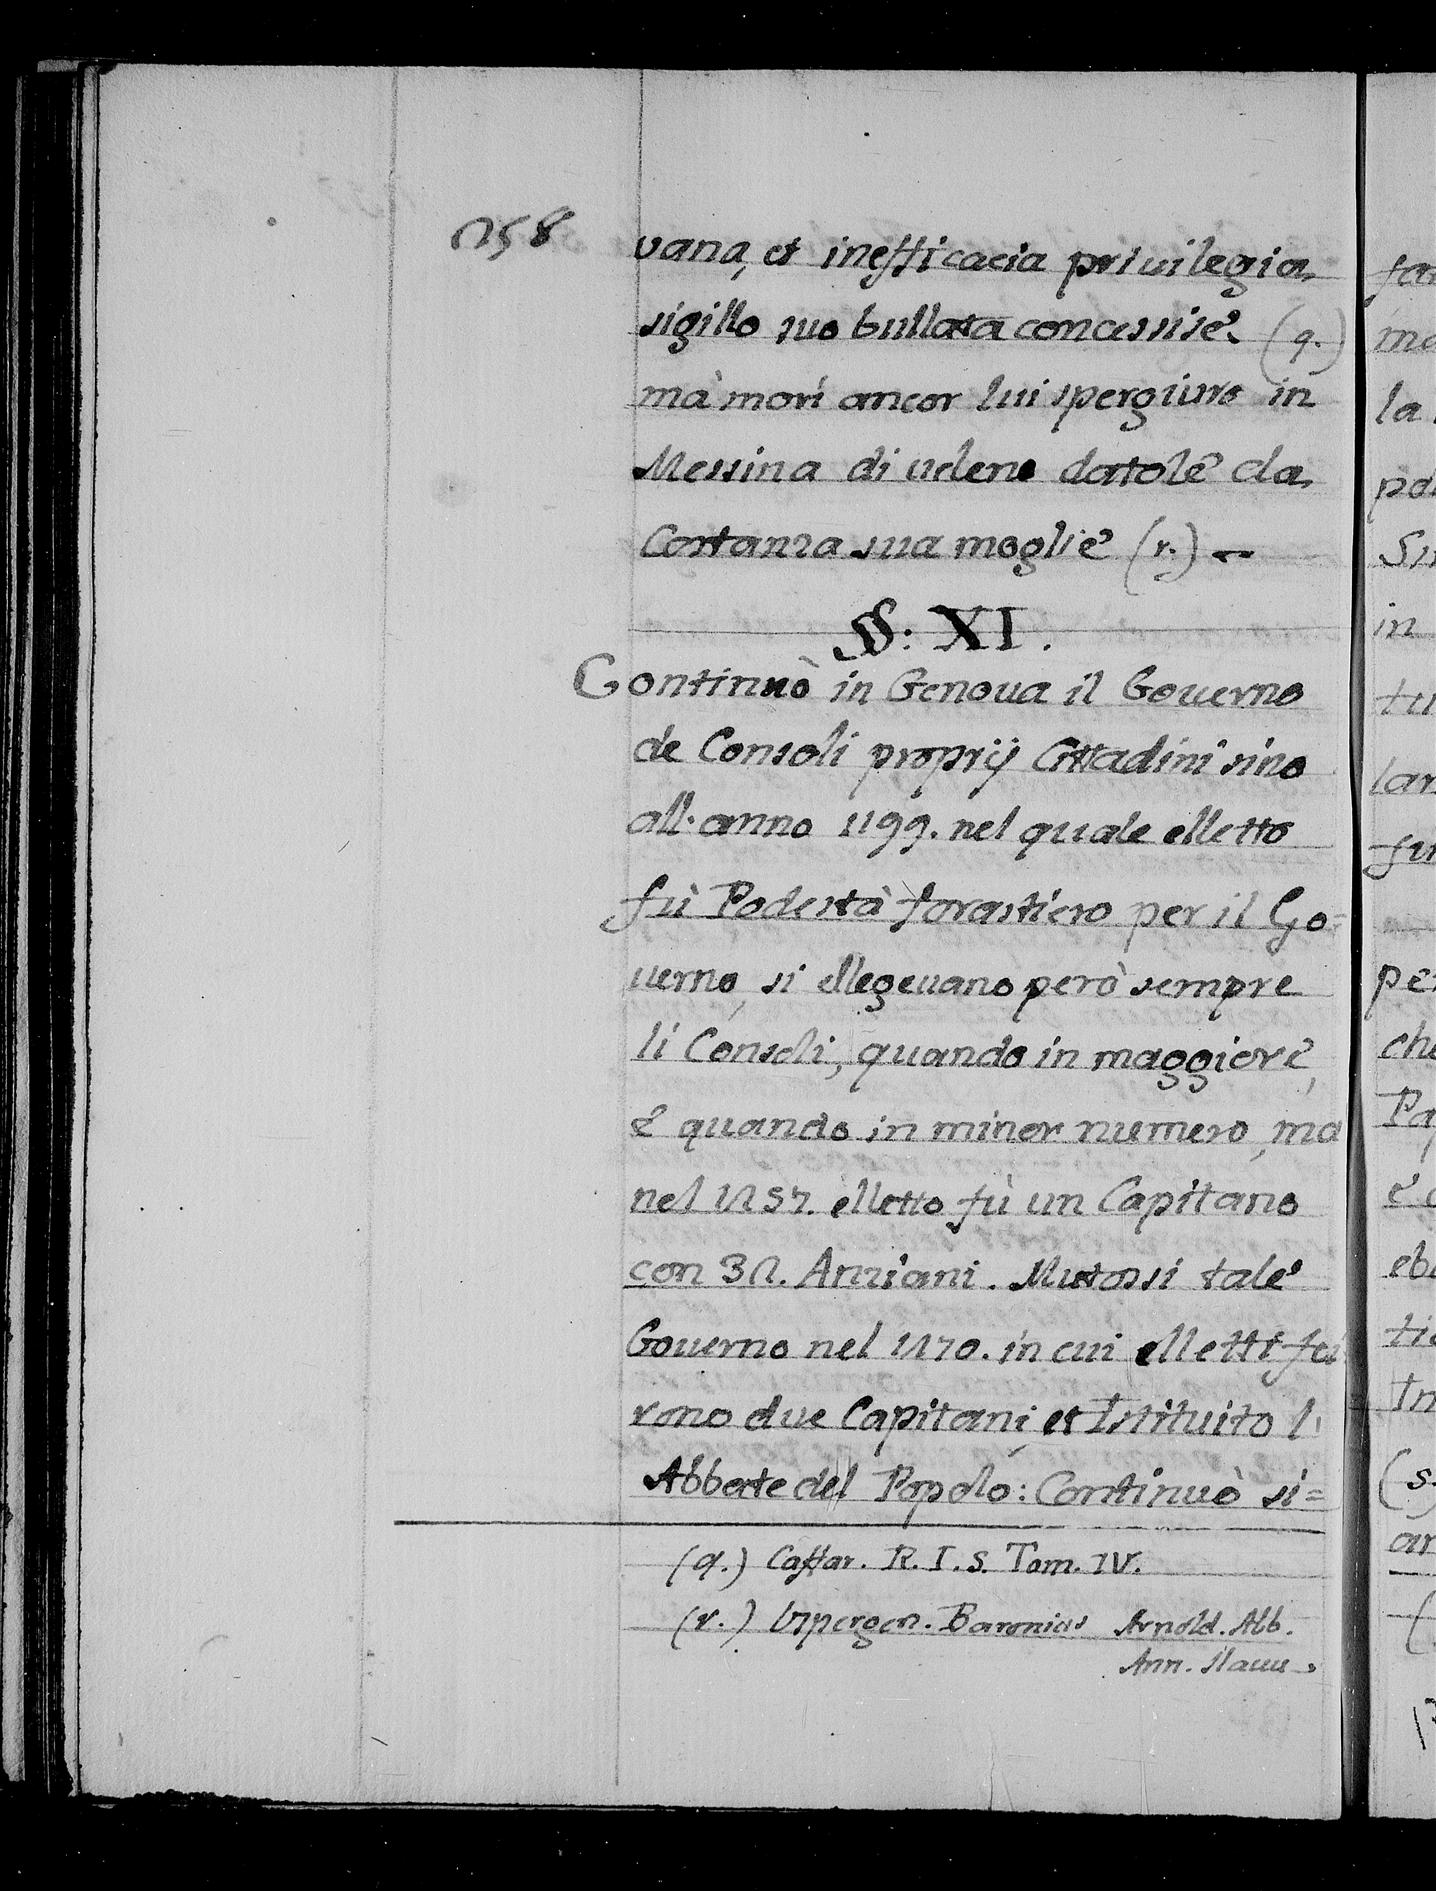 258
vana, et inefficacia privilegia
sigillo suo bullata concessisè. (q.)
mà morì ancor lui spergiuro in
Messina di veleno datolè da
Costanza sua moglie (r.)
§§: XI.
Continuò in Genova il Governo
de Consoli proprij Cittadini sino
all' anno 1199. nel quale elletto
fù Podestà forastiero per il Go=
verno, si ellegevano però sempre
li Consoli, quando in maggiorè,
è quando in minor numero, ma
nel 1257. elletto fù un Capitano
con 32. Anziani. Mutossi talè
Governo nel 1270. in cui elletti fu
rono due Capitani, et Istituito l'
Abbate del Popolo: Continuò si=
(q.) Caffar. R. I. S. Tom. IV.
(r.) Uspergen. Baronius Arnold. Abb.
Ann. slavv.